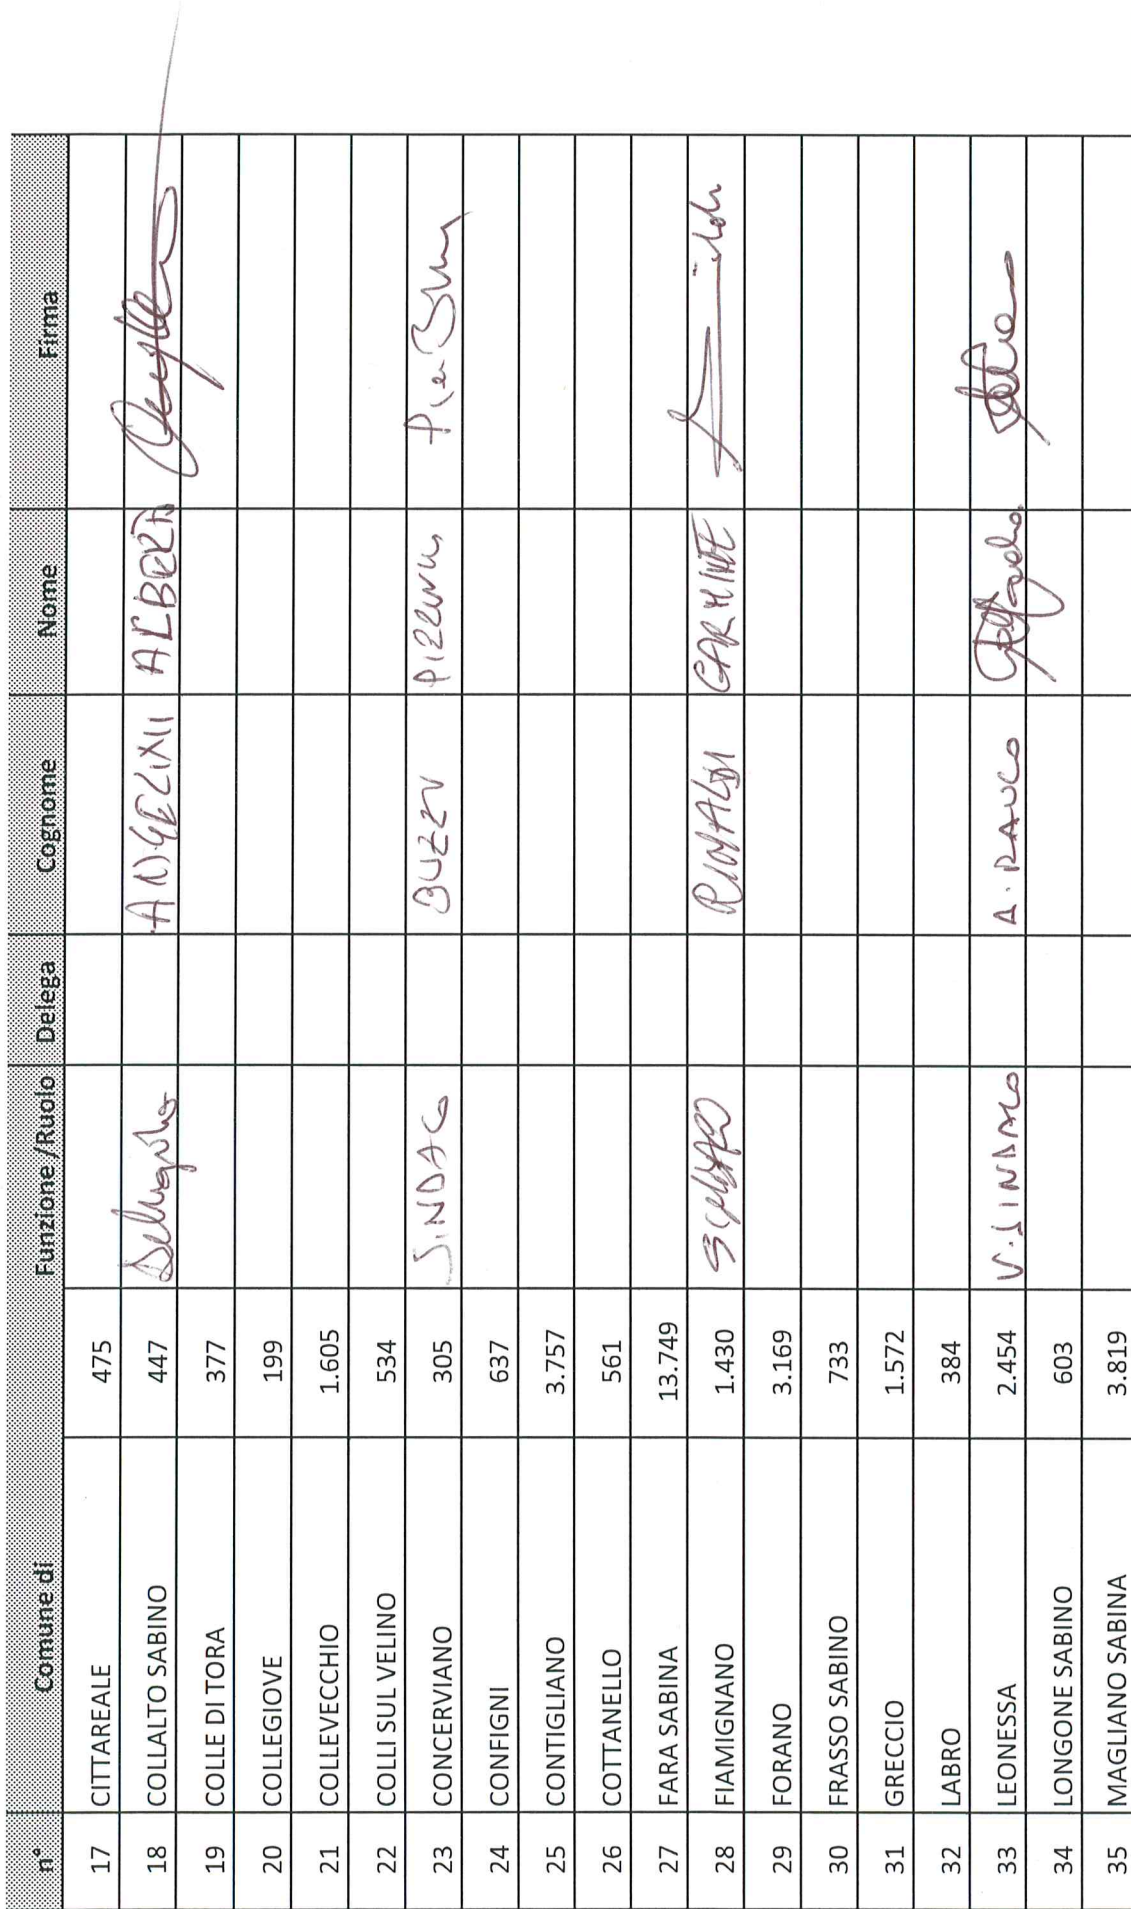 n° Comune di Funzione /Ruolo Delega Cognome Nome Firma
17 CITTAREALE 475
18 COLLALTO SABINO 447 ANGELINI ALBERTO
19 COLLE DI TORA 377
20 COLLEGIOVE 199
21 COLLEVECCHIO 1.605
22 COLLI SUL VELINO 534
23 CONCERVIANO 305 SINDACO BUZZI
24 CONFIGNI 637
25 CONTIGLIANO 3.757
26 COTTANELLO 561
27 FARA SABINA 13.749
28 FIAMIGNANO 1.430 RINALDI CARMINE
29 FORANO 3.169
30 FRASSO SABINO 733
31 GRECCIO 1.572
32 LABRO 384
33 LEONESSA 2.454 V. SINDACO
34 LONGONE SABINO 603
35 MAGLIANO SABINA 3.819